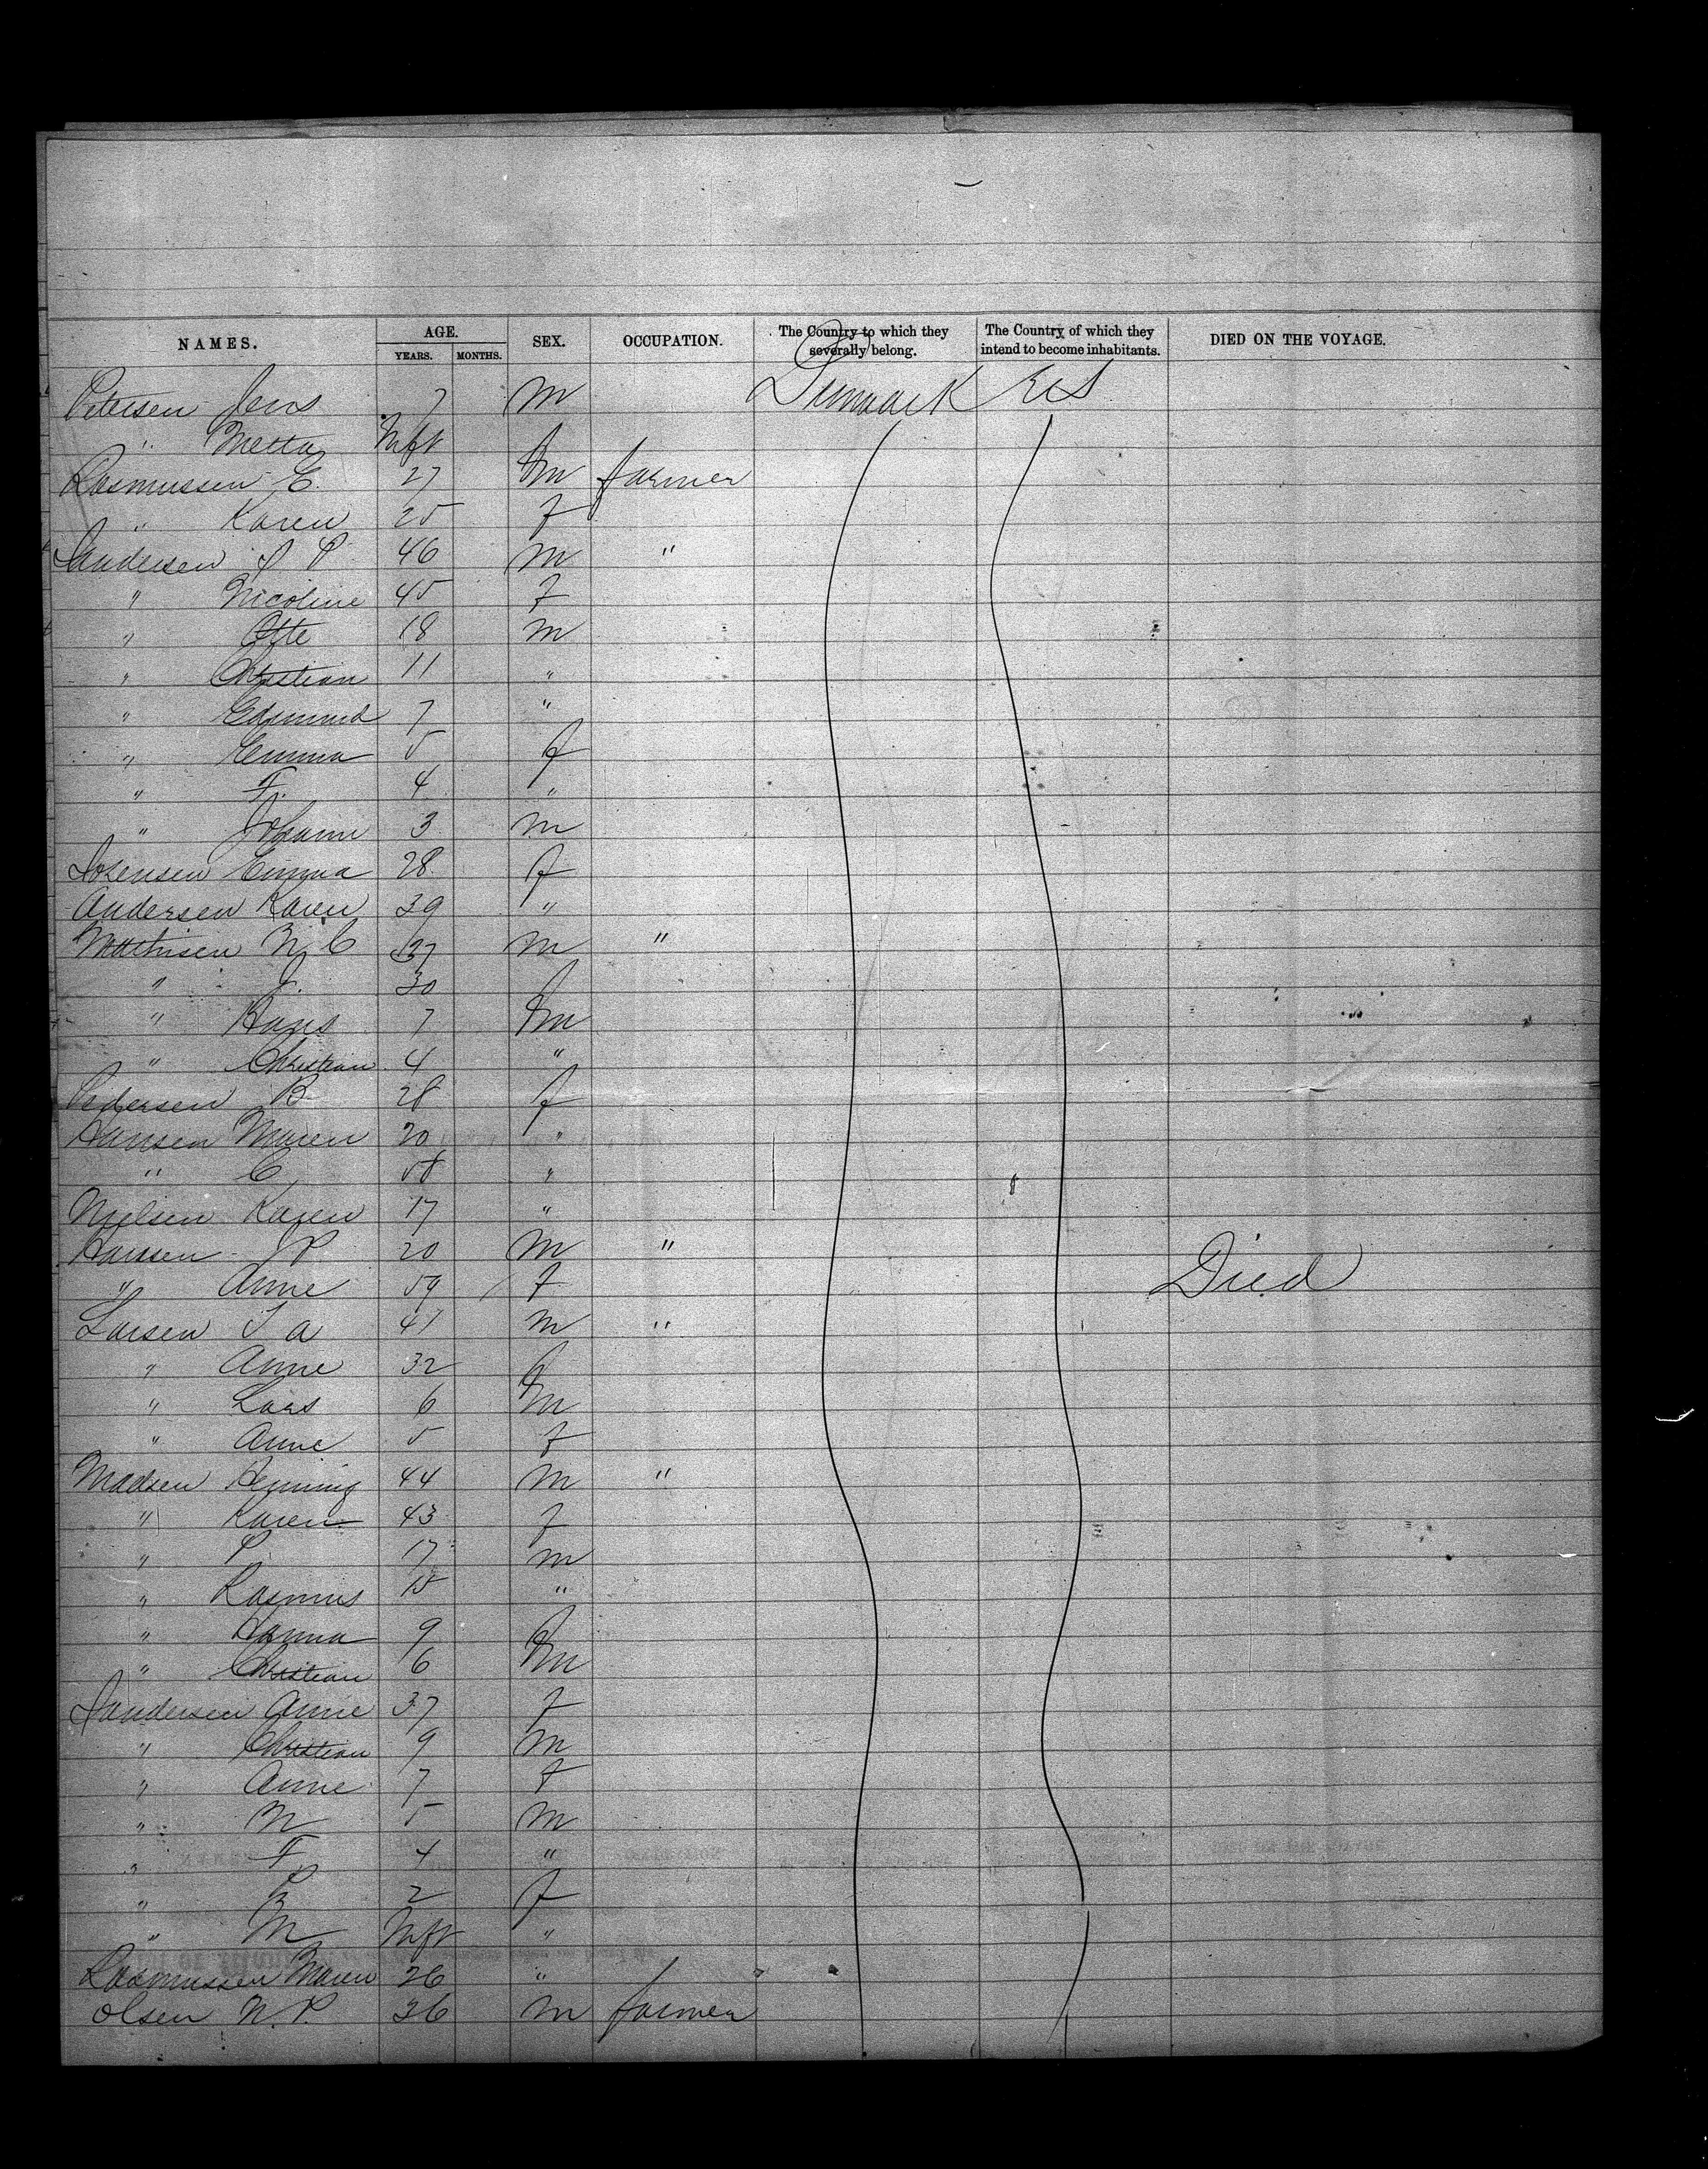 NAMES. AGE. SEX. OCCUPATION. The Country to which they severally belong. The Country of which they intend to become inhabitants. DIED ON THE VOYAGE.
YEARS. MONTHS.
Petersen Jens 7 m Denmark US
" Metta Inft
Rasmussen C. 27 m farmer
" Karen 25 f
Sandersen P 46 m "
" Nicoline 45 f
" Otte 18 m
" Christian 11 "
" Edsmund 7 "
" Emma 5 f
" F. 4 "
" Johann 3 m
Emma 28 f
Andersen Karen 39 "
Mathisen N C 37 m "
" J. 30 f
" Hans 7 m
" Christian 4 "
Pedersen B 28 f
Hansen Maren 20 "
" C 58 "
Nielsen Karen 17 "
Hansen J P 20 m "
" Anne 59 f Died
Larsen T a 41 m "
" Anne 32 f
" Lars 6 m
" Anne 5 f
Madsen Henning 44 m "
" Karen 43 f
" P 17 m
" Rasmus 15 "
" Hanna 9 f
" Christian 6 m
Sandersen Anne 37 f
" Christian 9 m
" Anne 7 f
" N 5 m
" F 4 "
" 2 f
" M Inft "
Rasmussen Maren 26 "
Olsen N. P. 36 m farmer